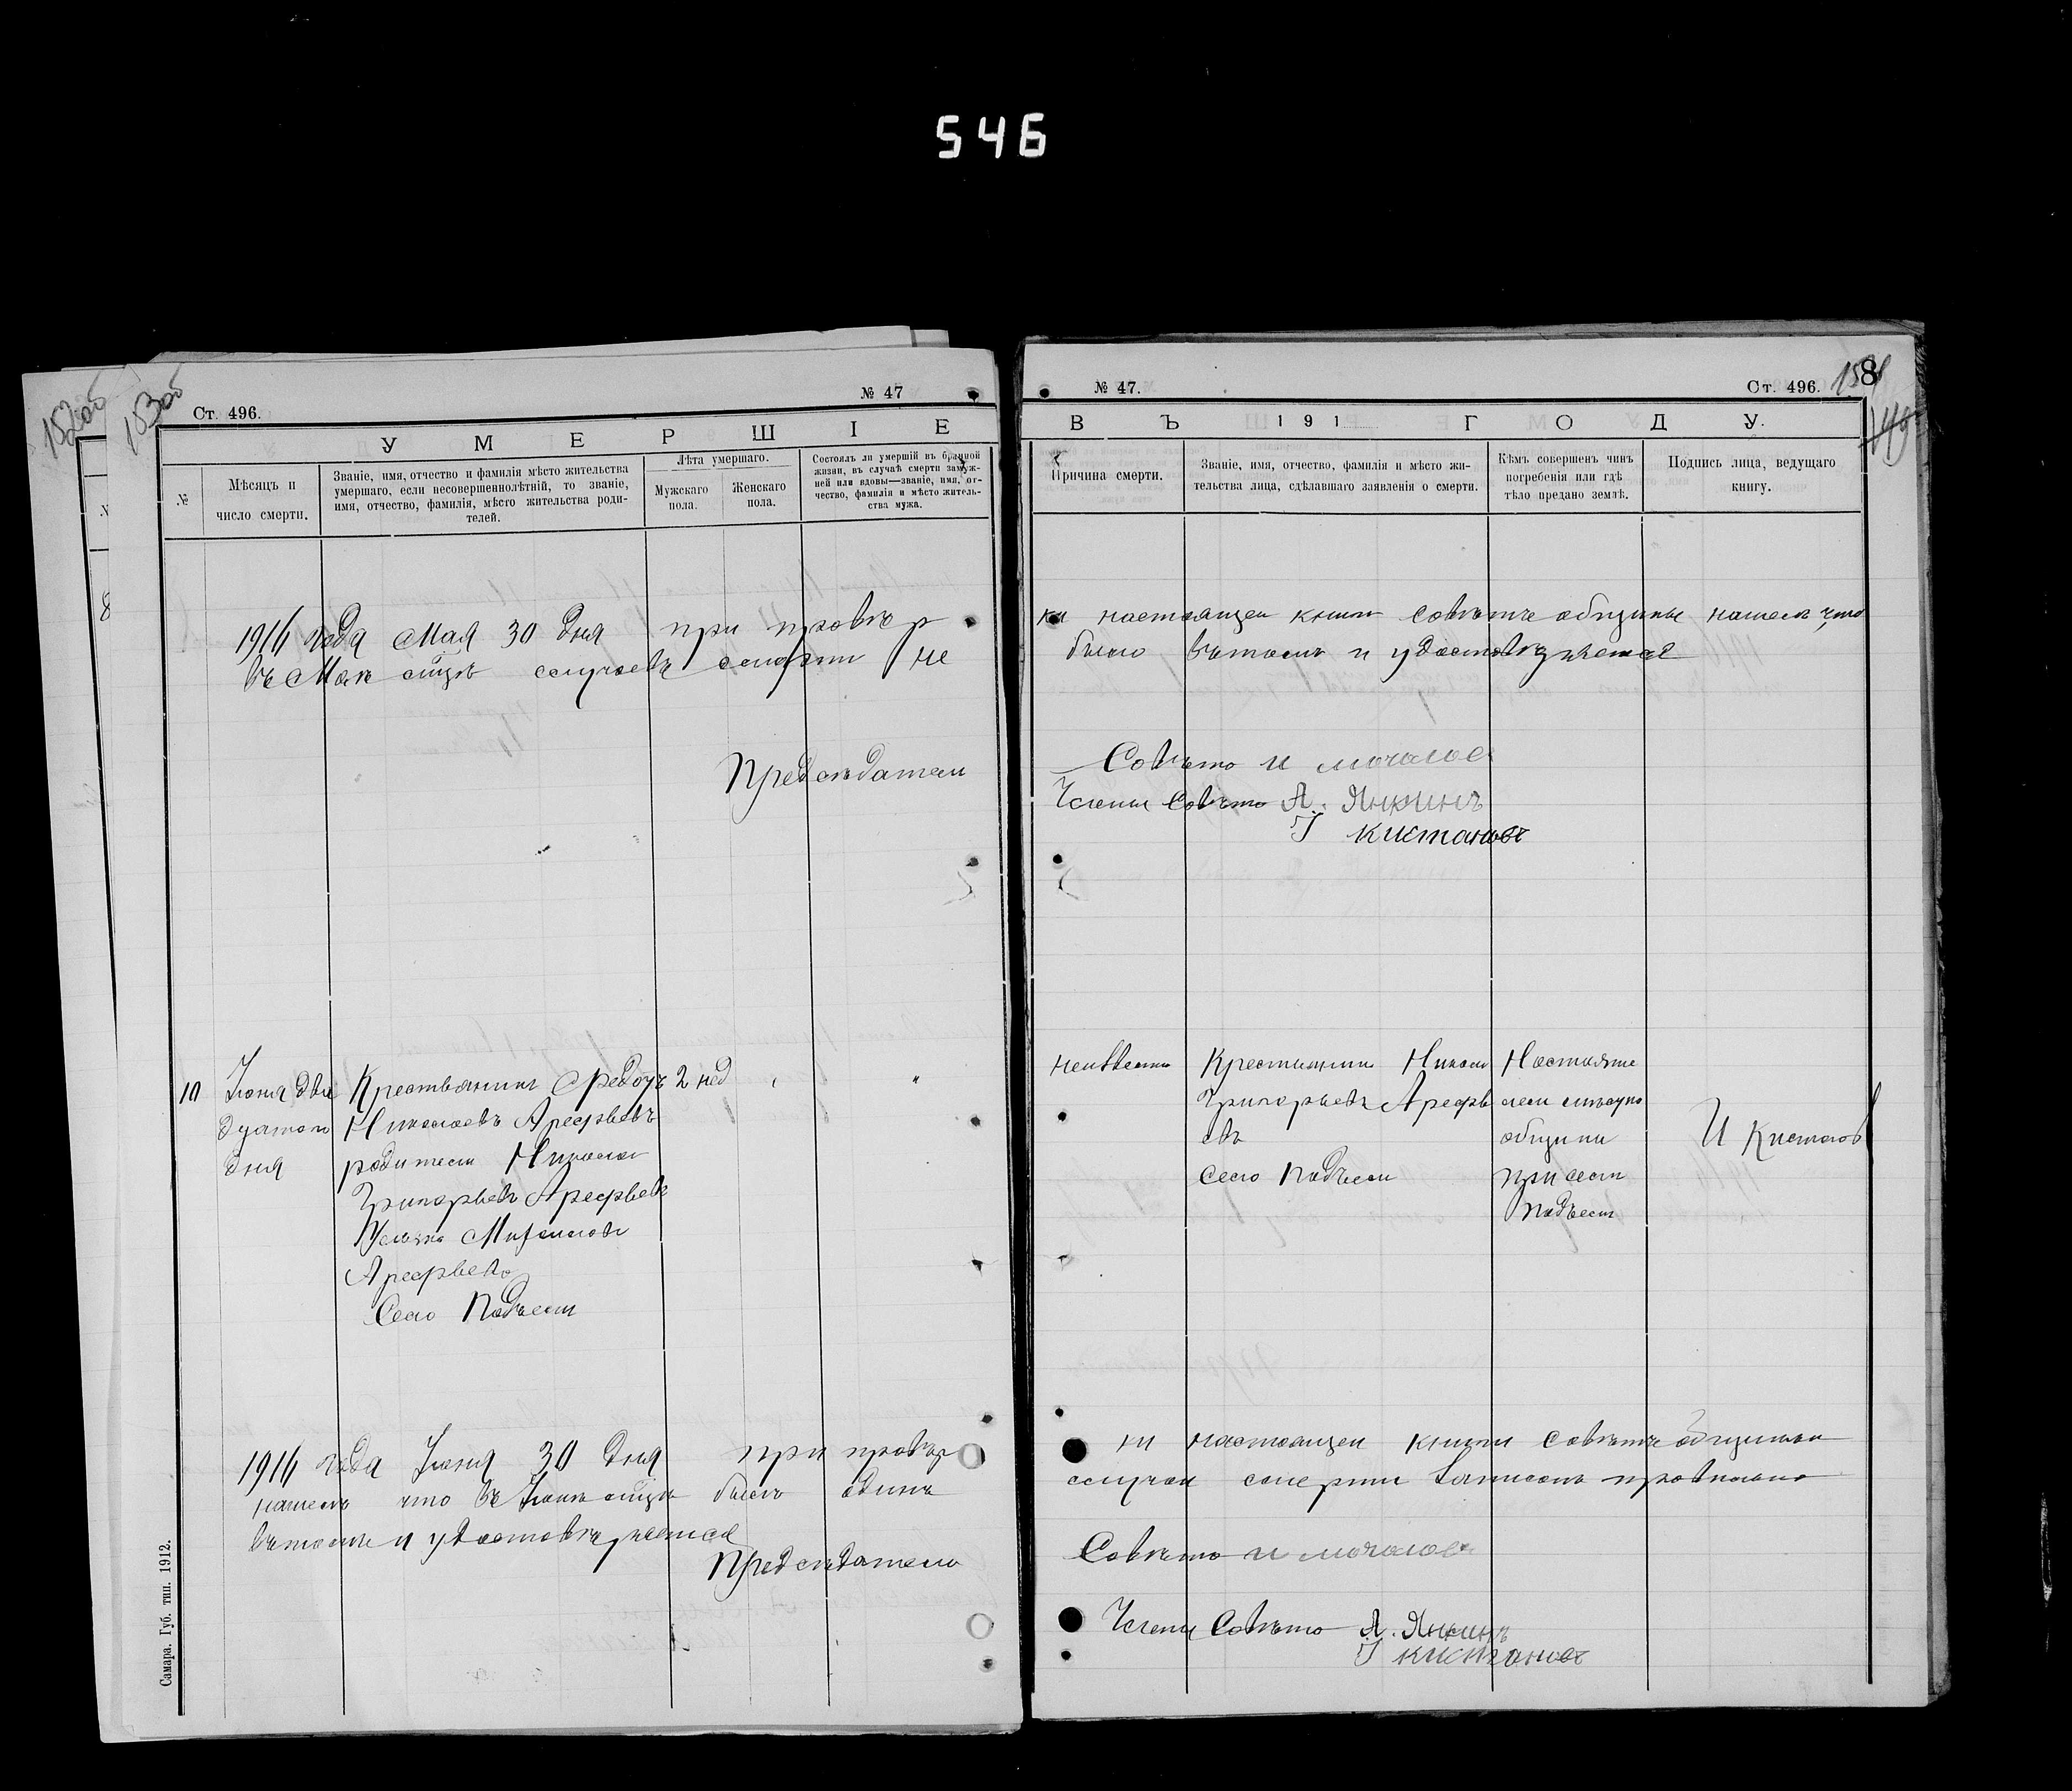 546
152об
153об
Ст. 496.
№ 47
У М Е Р Ш І Е
№
Мѣсяцъ и
число смерти.
Званіе, имя, отчество и фамилія мѣсто жительства
умершаго, если несовершеннолѣтній, то званіе,
имя, отчество, фамилія, мѣсто жительства роди-
телей.
Лѣта умершаго.
Мужскаго
пола.
Женскаго
пола.
Состоялъ ли умершій въ брачной
жизни, въ случаѣ смерти замуж-
ней или вдовы—званіе, имя, от-
чество, фамилія и мѣсто житель-
ства мужа.
1916 года Мая 30 дня при провѣр
въ Маѣ случаевъ смерти не
Председатели
10
Іюня два
дцатого
дня
Крестьянинъ Федотъ
Николаевъ Арефьевъ
родители Николаи
Григорьевъ Арефьевъ
Арефьева
Село
2 нед
1916 года Іюня 30 дня при провѣр
нашелъ что въ Іюнѣ былъ одинъ
вътомъ и удостовѣряется
Председатель
Самара. Губ. тип. 1912.
№ 47.
Ст. 496.
8
149
В Ъ 1 9 1 Г О Д У.
Причина смерти.
Званіе, имя, отчество, фамилія и мѣсто жи-
тельства лица, сдѣлавшаго заявленія о смерти.
Кѣмъ совершенъ чинъ
погребенія или гдѣ
тѣло предано землѣ.
Подпись лица, ведущаго
книгу.
ки настоящеи книги совѣтъ общины нашелъ что
было вътомъ и удостовѣряется
Совѣта и мочалов
Члены Совѣта А. Янкинъ
І кистановъ
неизвестно
Николаи
Григорьевъ Арефь
евъ
Село
общины
при сели
И Кистанов
ки настоящеи книги Совѣтъ общины
случаи смерти записанъ правильно
Совѣта и мочалов
Члены Совѣта А. Янкинъ
І кистановъ